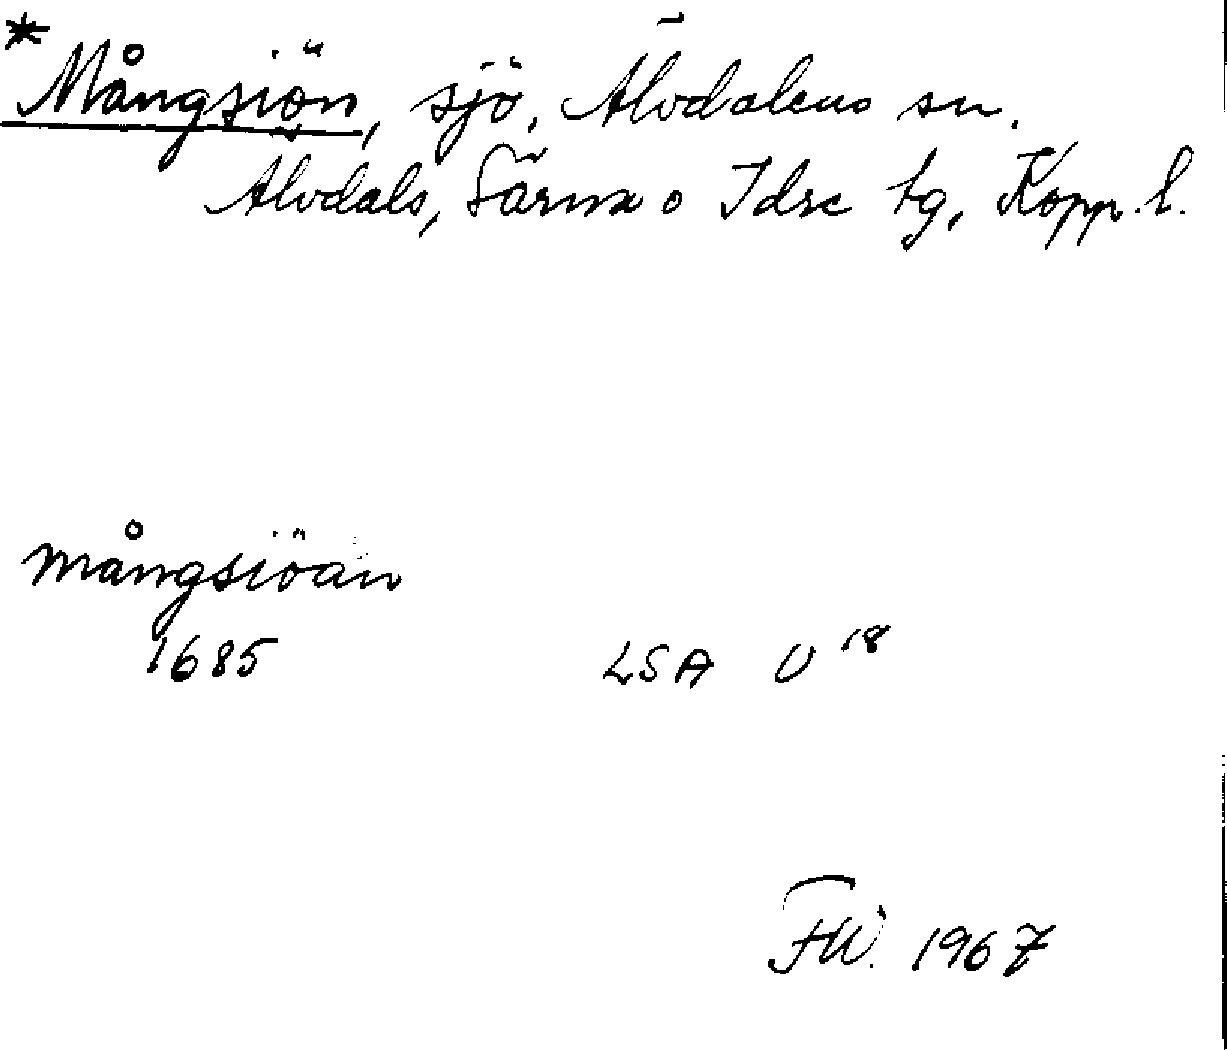 *Mångsiön, sjö, Älvdalens sn.
Älvdals, Särna o Idre tg, Kopp. l.
mångsiöän
1685 LSA U 18
FW. 1967